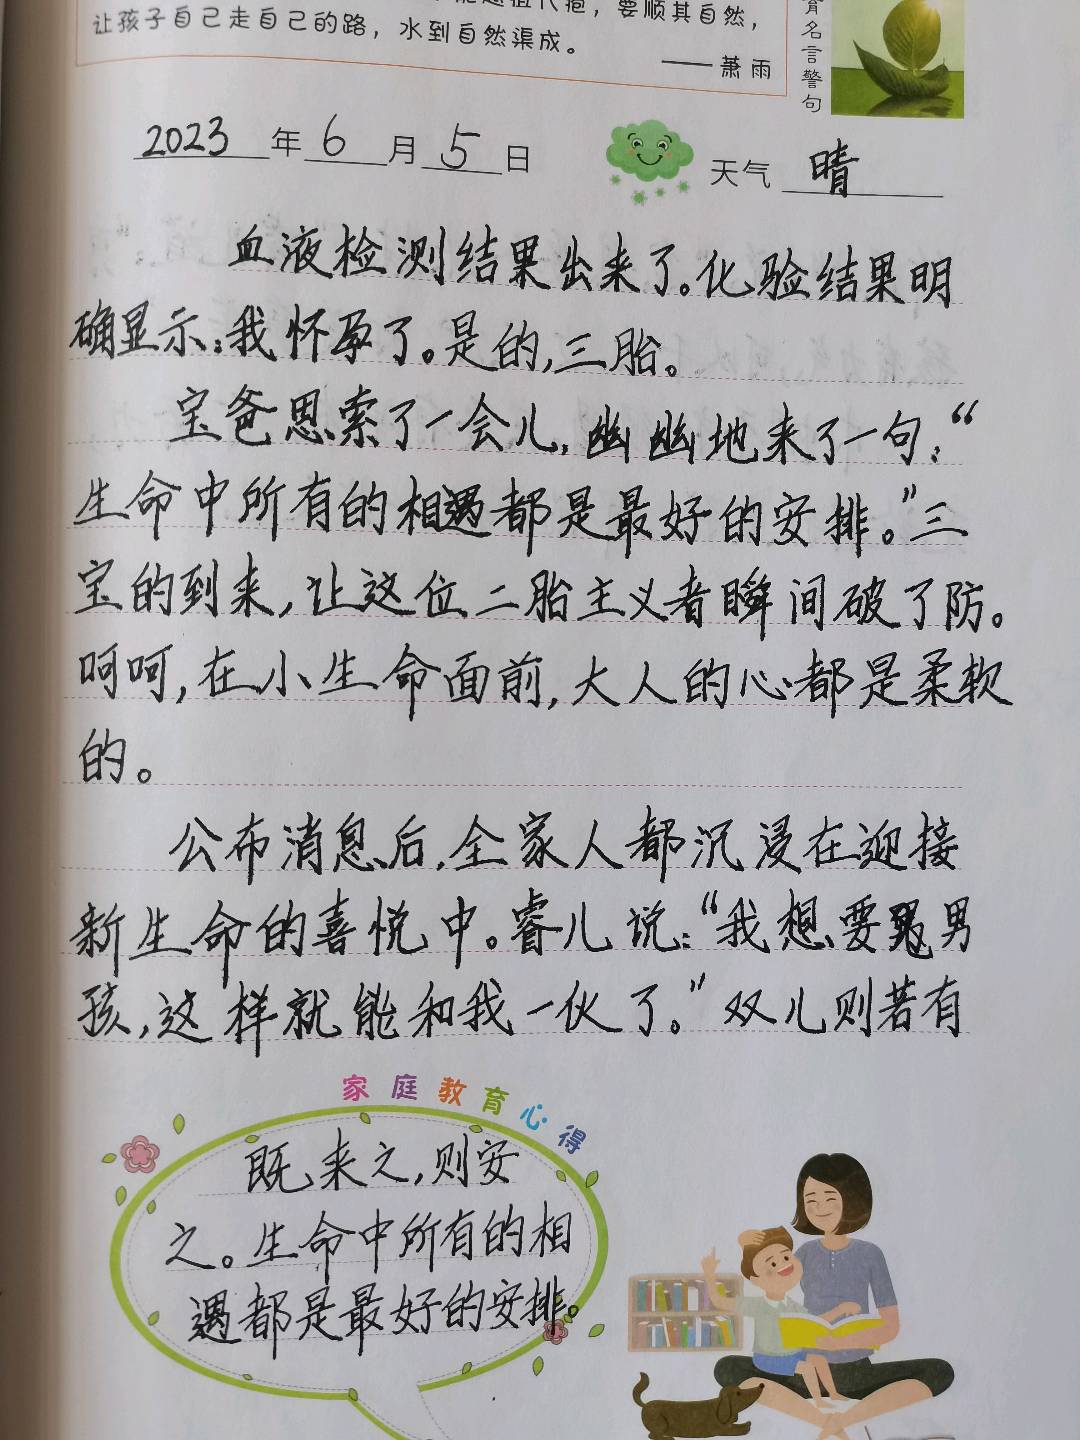 越俎代孢，要顺其自然，
让孩子自己走自己的路，水到自然渠成。
——萧雨
育名言警句
2023年6月5日
天气 晴
血液检测结果出来了。化验结果明
确显示：我怀孕了。是的，三胎。
宝爸思索了一会儿，幽幽地来了一句：“
生命中所有的相遇都是最好的安排。”三
宝的到来，让这位二胎主义者瞬间破了防。
呵呵，在小生命面前，大人的心都是柔软
的。
公布消息后，全家人都沉浸在迎接
新生命的喜悦中。睿儿说：“我想要男
孩，这样就能和我一伙了。”双儿则若有
家庭教育心得
既来之，则安
之。生命中所有的相
遇都是最好的安排。